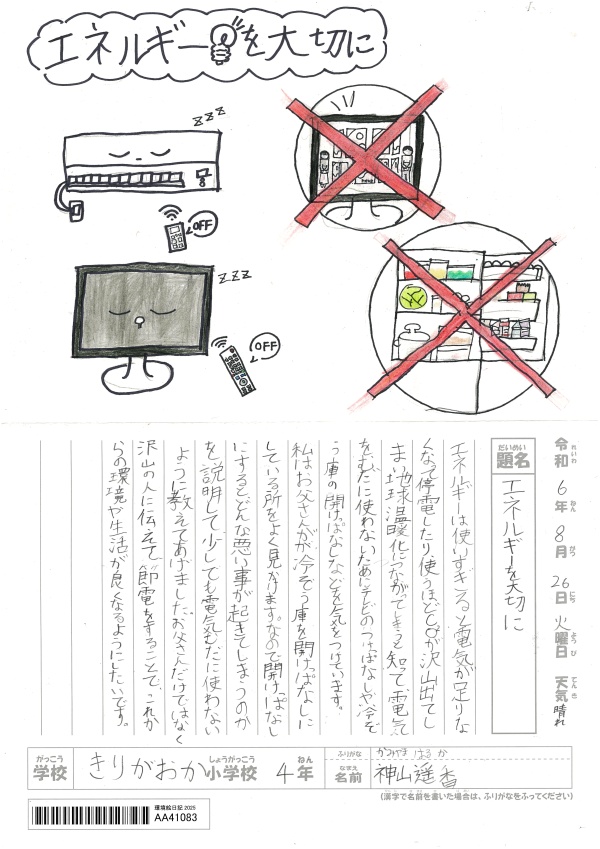 エネルギーを大切に
zzz
OFF
zzz
OFF
令和6年8月26日火曜日 天気晴れ
れいわ ねん がつ にち ようび てんき
だいめい
題名
エネルギーを大切に
エネルギーは使いすぎると電気が足りな
くなって停電したり使うほどCO₂が沢山出てし
まい地球温暖化につながってしまうと知って、電気
をむだに使わないためにテレビのつけっぱなしや冷ぞ
う庫の開けっぱなしなどを気をつけています。
私はお父さんがが冷ぞう庫を開けっぱなしに
している所をよく見かけます。なので開けっぱなし
にするとどんな悪い事が起きてしまうのか
を説明して少しでも電気をむだに使わない
ように教えてあげました。お父さんだけではなく
沢山の人に伝えて"節電をすることで、これか
らの環境や生活が良くなるようにしたいです。
がっこう しょうがっこう ねん
学校 きりがおか小学校 4年
ふりがな かみやま はるか
なまえ
名前 神山遥香
(漢字で名前を書いた場合は、ふりがなをふってください)
環境絵日記 2025
AA41083